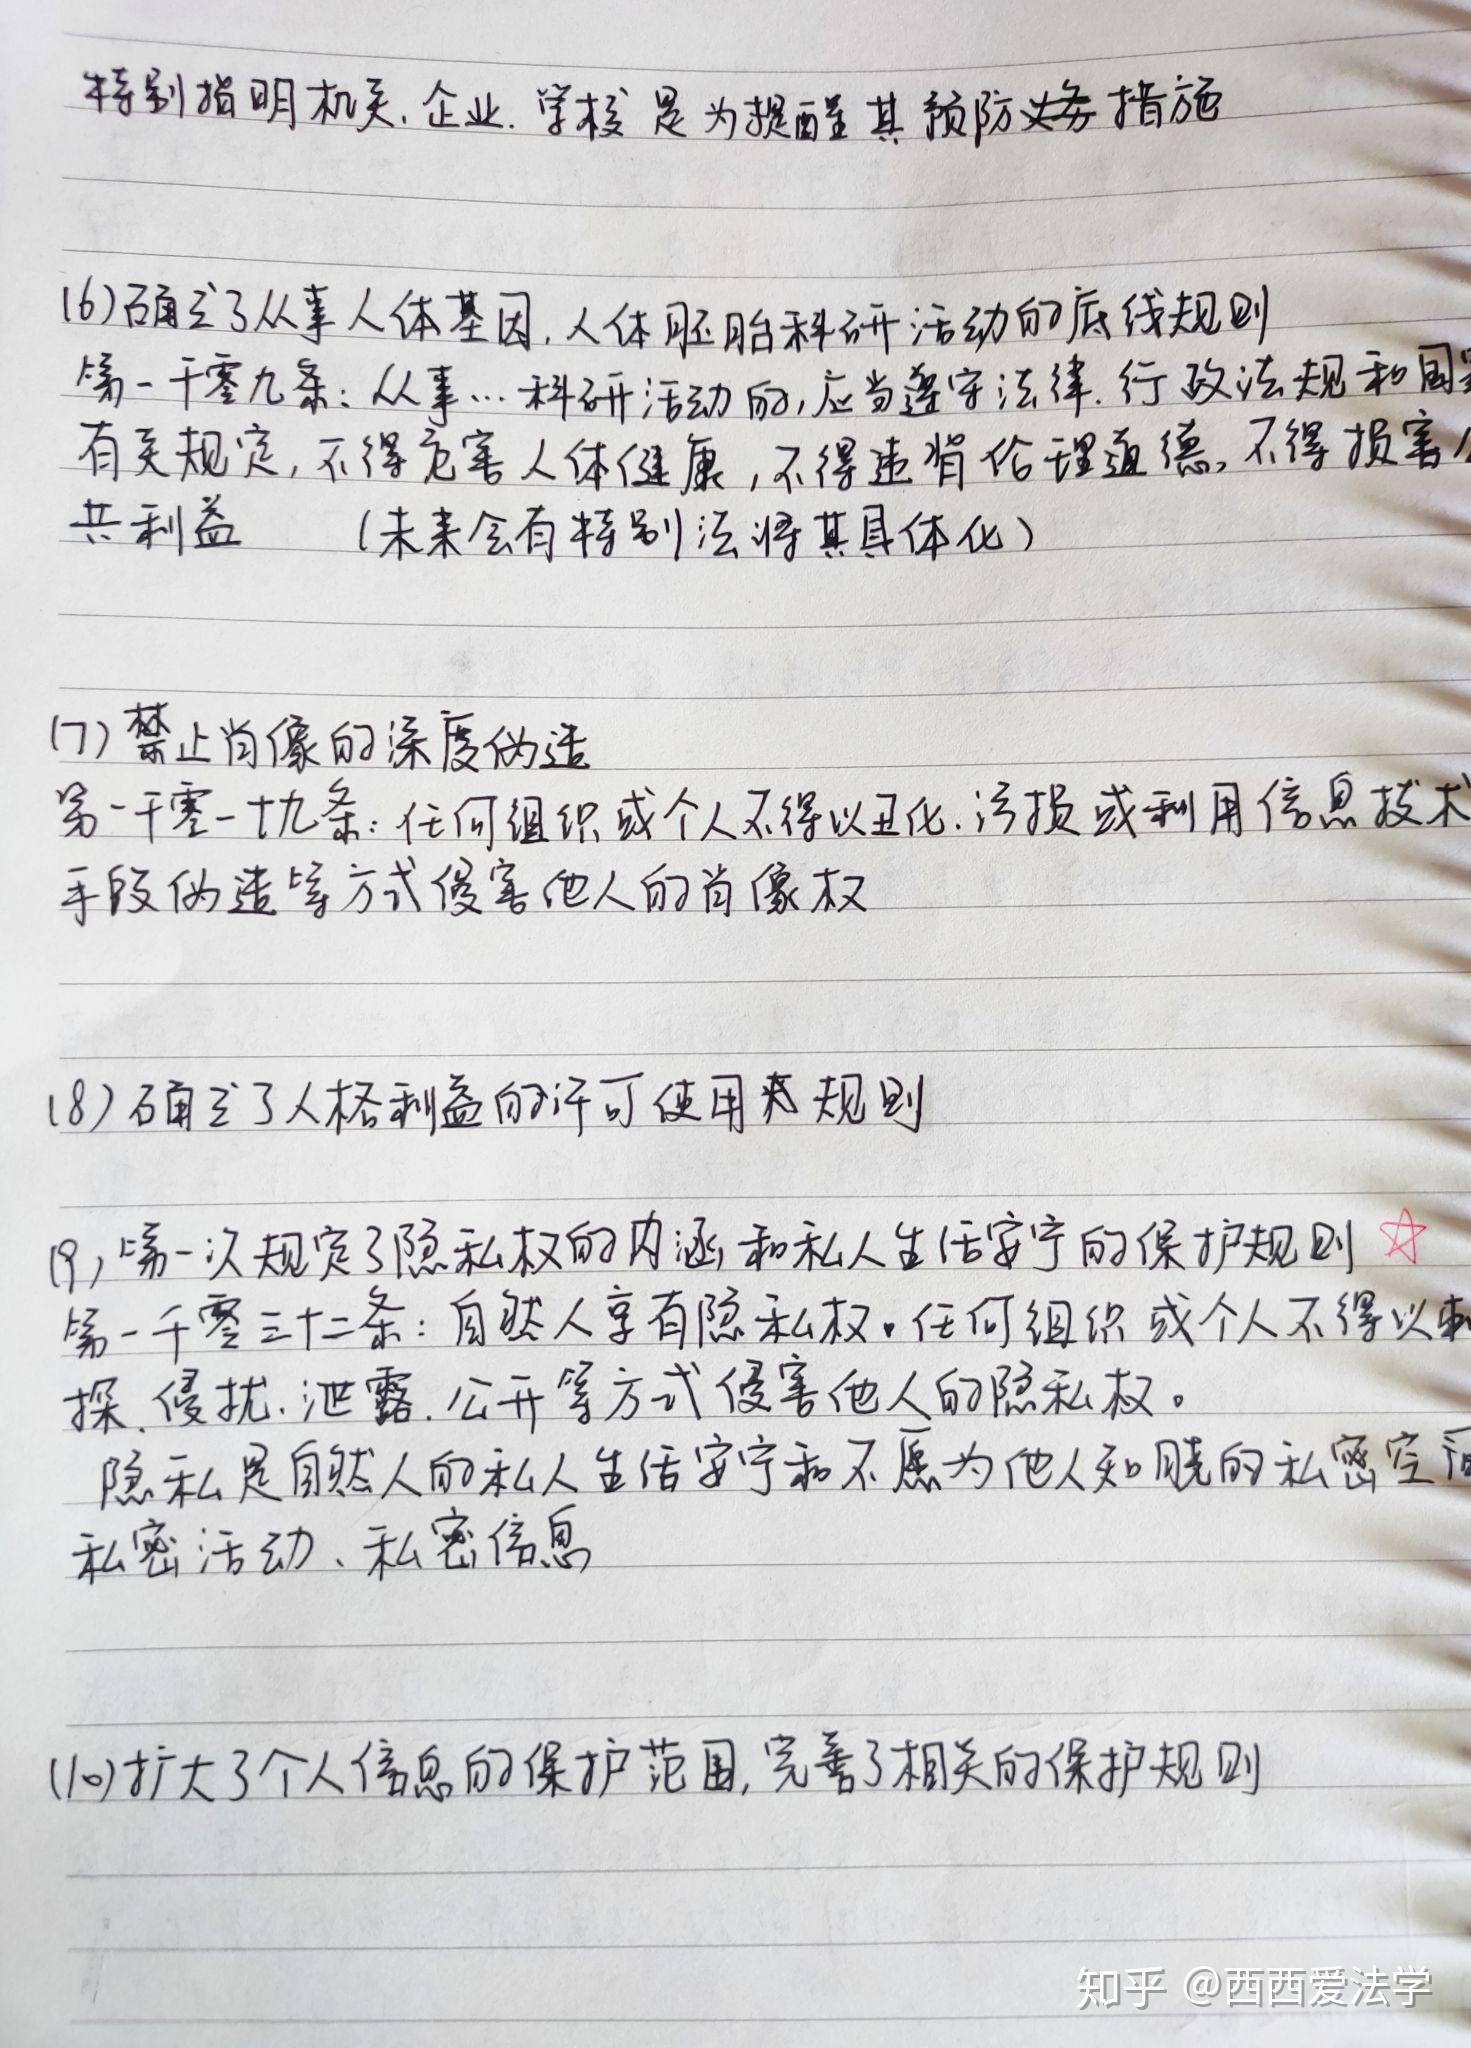 特别指明机关、企业、学校是为提醒其预防义务措施
(6)确立了从事人体基因、人体胚胎科研活动的底线规则
第一千零九条：从事…科研活动的，应当遵守法律、行政法规和国家
有关规定，不得危害人体健康，不得违背伦理道德，不得损害公
共利益 （未来会有特别法将其具体化）
(7)禁止肖像的深度伪造
第一千零一十九条：任何组织或个人不得以丑化、污损或利用信息技术
手段伪造等方式侵害他人的肖像权
(8)确立了人格利益的许可使用规则
(9)第一次规定了隐私权的内涵和私人生活安宁的保护规则 ☆
第一千零三十二条：自然人享有隐私权。任何组织或个人不得以刺
探、侵扰、泄露、公开等方式侵害他人的隐私权。
隐私是自然人的私人生活安宁和不愿为他人知晓的私密空间
私密活动、私密信息
(10)扩大了个人信息的保护范围，完善了相关的保护规则
知乎 @西西爱法学